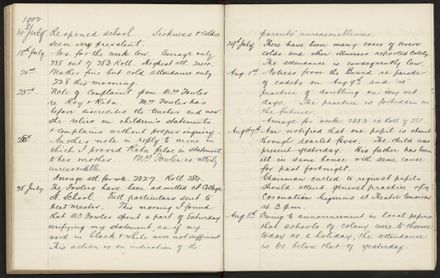 1902
14th July. Re opened school. Sickness & colds
seem very prevalent.
18th July. Av. for the week low. Average only
235 out of 283 Roll. Highest att. 2000.
21st Weather fine but cold attendance only
228 this morning.
23rd Note of Complaint from Mrs Fowler
re Ray & Rita. Mrs Fowler has
before discredited the teacher and now
she relies on children's statements
& complains without proper inquiry.
Another note in reply to mine
which I proved Rita false in statement
to her mother. Mrs Fowler is utterly
unreasonable.
Average att. for wk. 232.7 Roll 284.
28 July. The Fowlers have been admitted at College
St. School. Full particulars sent to
Head Master. This morning I found
that Mr Fowler spent a part of Saturday
verifying my statement as if my
word in black & white was not sufficient
This action is an indication of the
parents' unreasonableness.
29th July. There have been many cases of severe
colds and other illnesses reported lately.
The attendance is consequently low.
Aug. 1st Notices from the Board re parade
of cadets on Aug 9th and re
practice of doubling on very wet
days. The practice is forbidden in
the future.
Average for week. 233.3 in Roll of 281
Aug. Am notified that one pupil is absent
through scarlet fever. The child was
present yesterday. His father has been
ill in same house with same cause
for past fortnight.
Chairman called to request pupils
should attend general practice of
Coronation hymns at Theatre tomorrow
at 2 p.m.
Aug. 8th Owing to announcement in local papers
that schools of colony were to have
today as a holiday, the attendance
is 60 below that of yesterday.